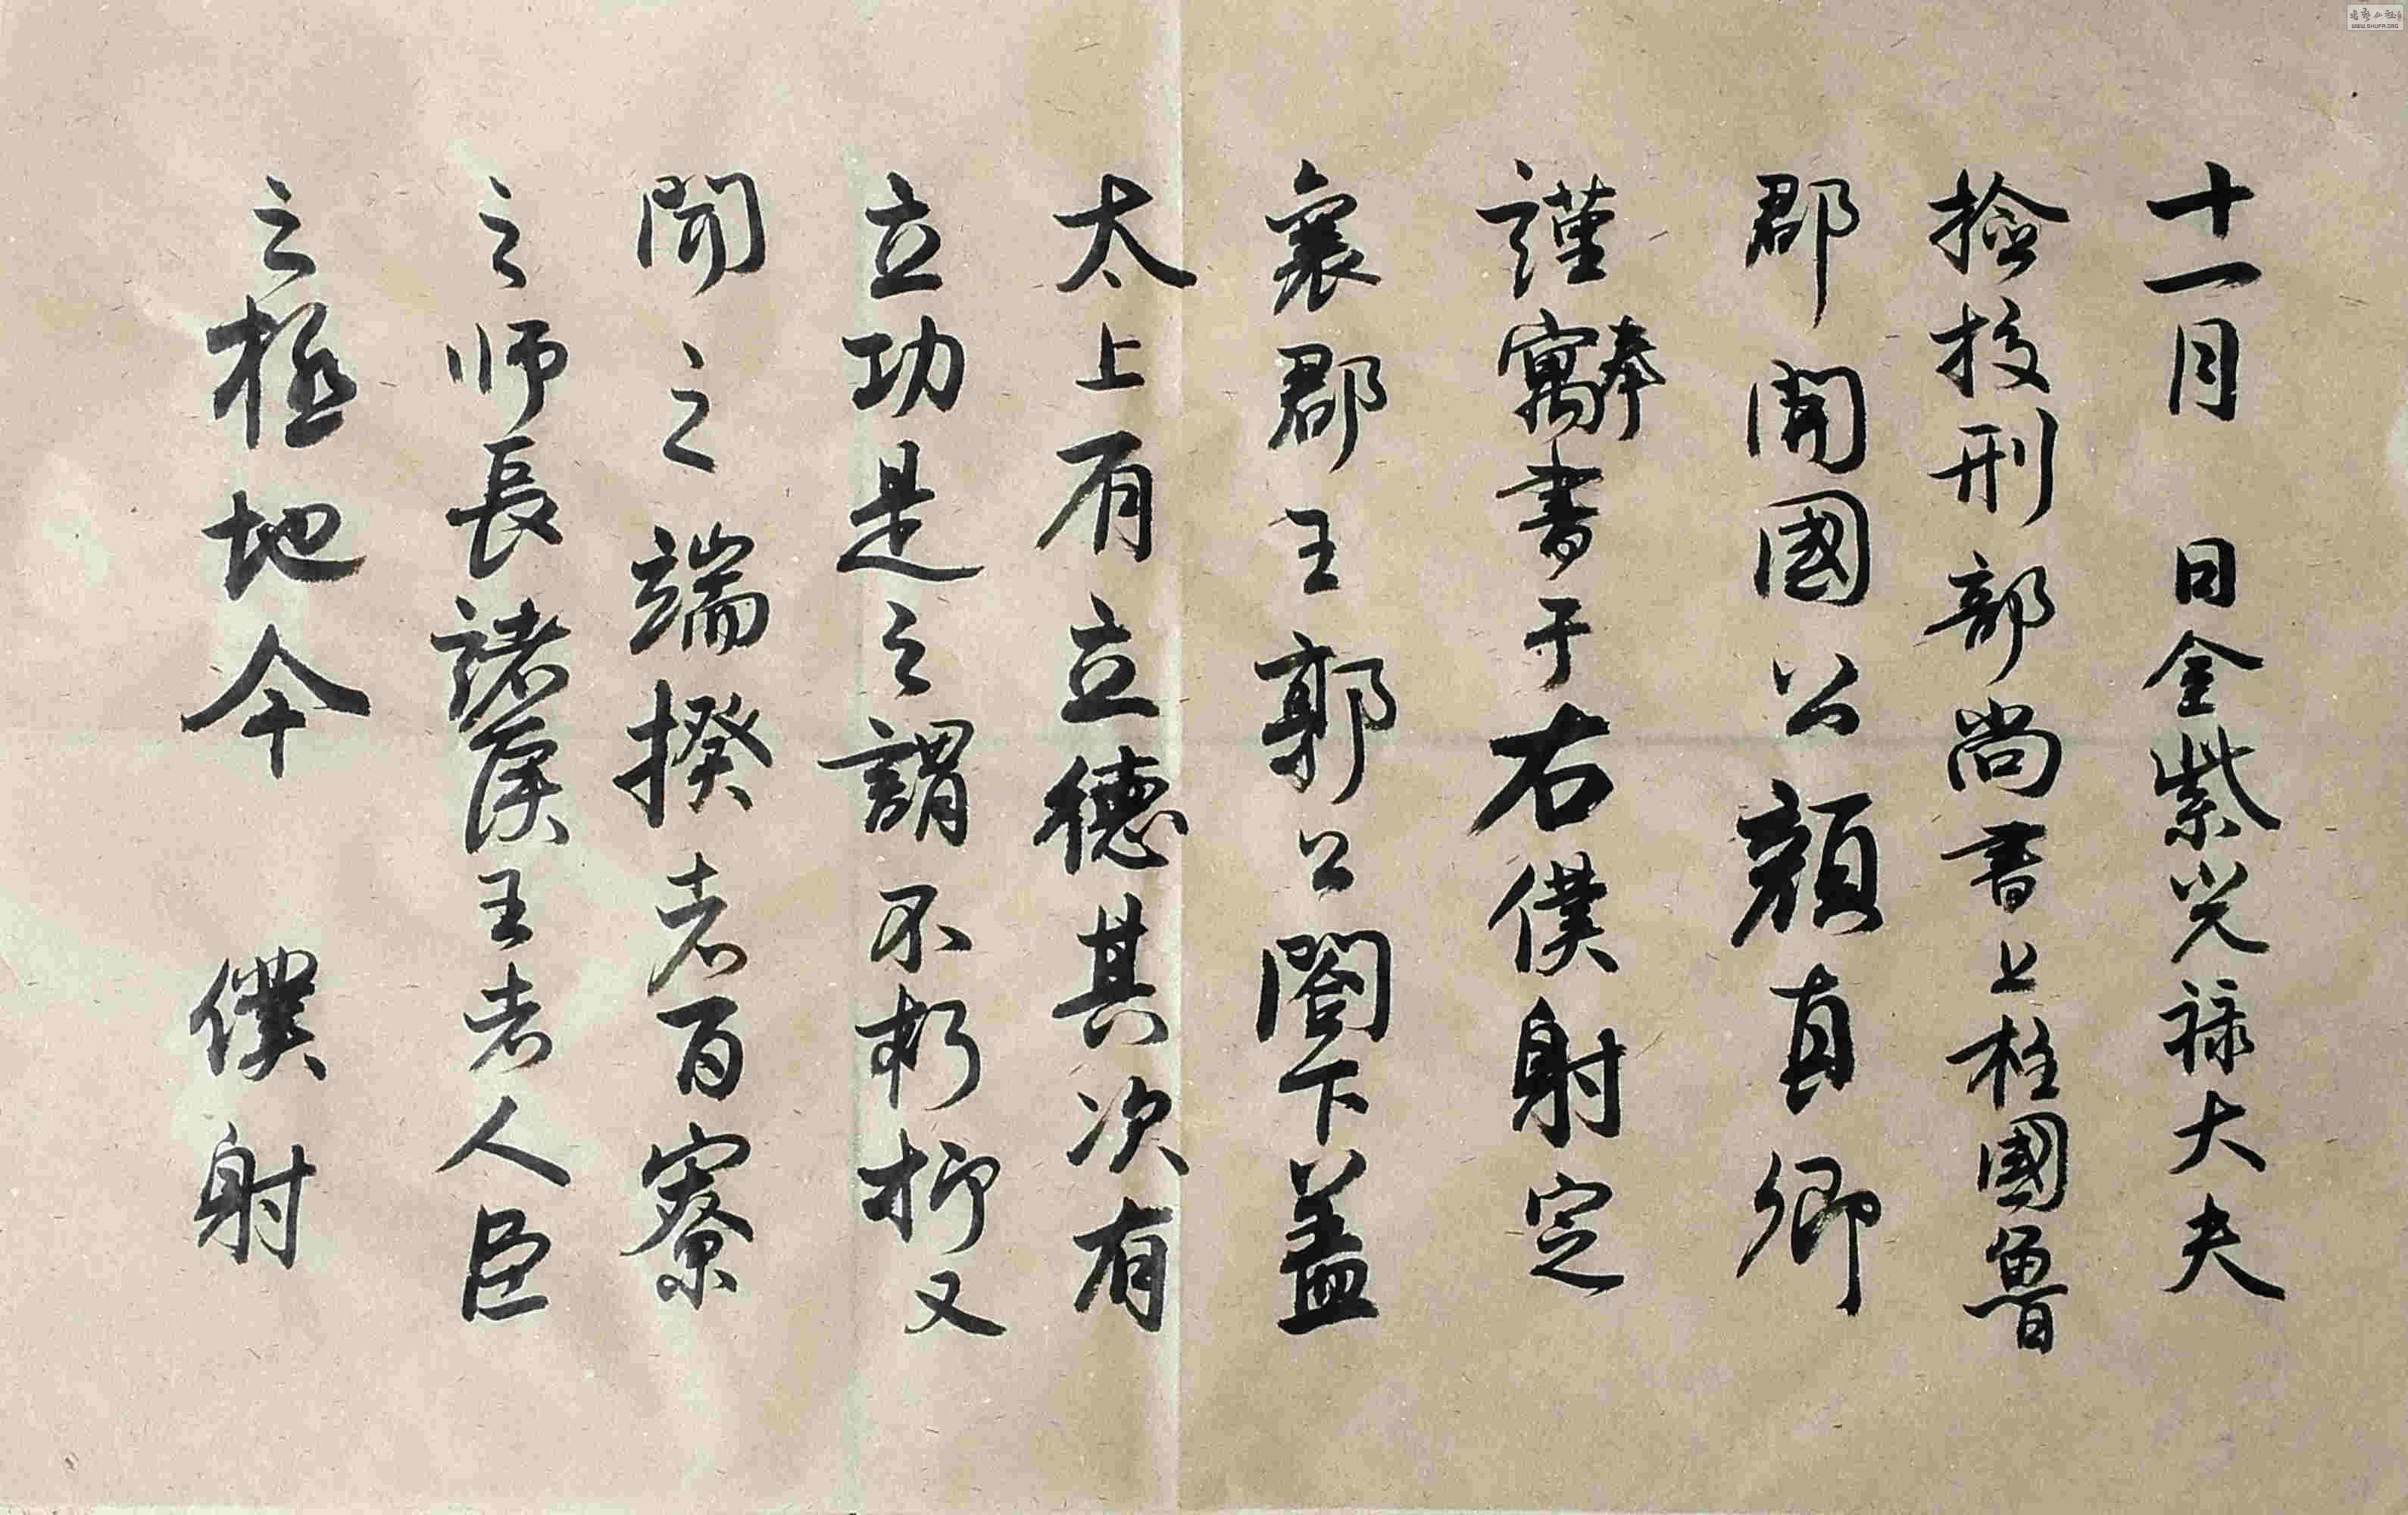 十一月 日金紫光禄大夫
撿挍刑部尚書上柱國魯
郡開國公顏真卿
謹寓奉書于右僕射定
襄郡王郭公閤下蓋
太上有立德其次有
立功是之謂不朽抑又
聞之端揆者百寮
之师長諸矦王者人臣
之極地今 僕射
WWW.SHUFA.ORG